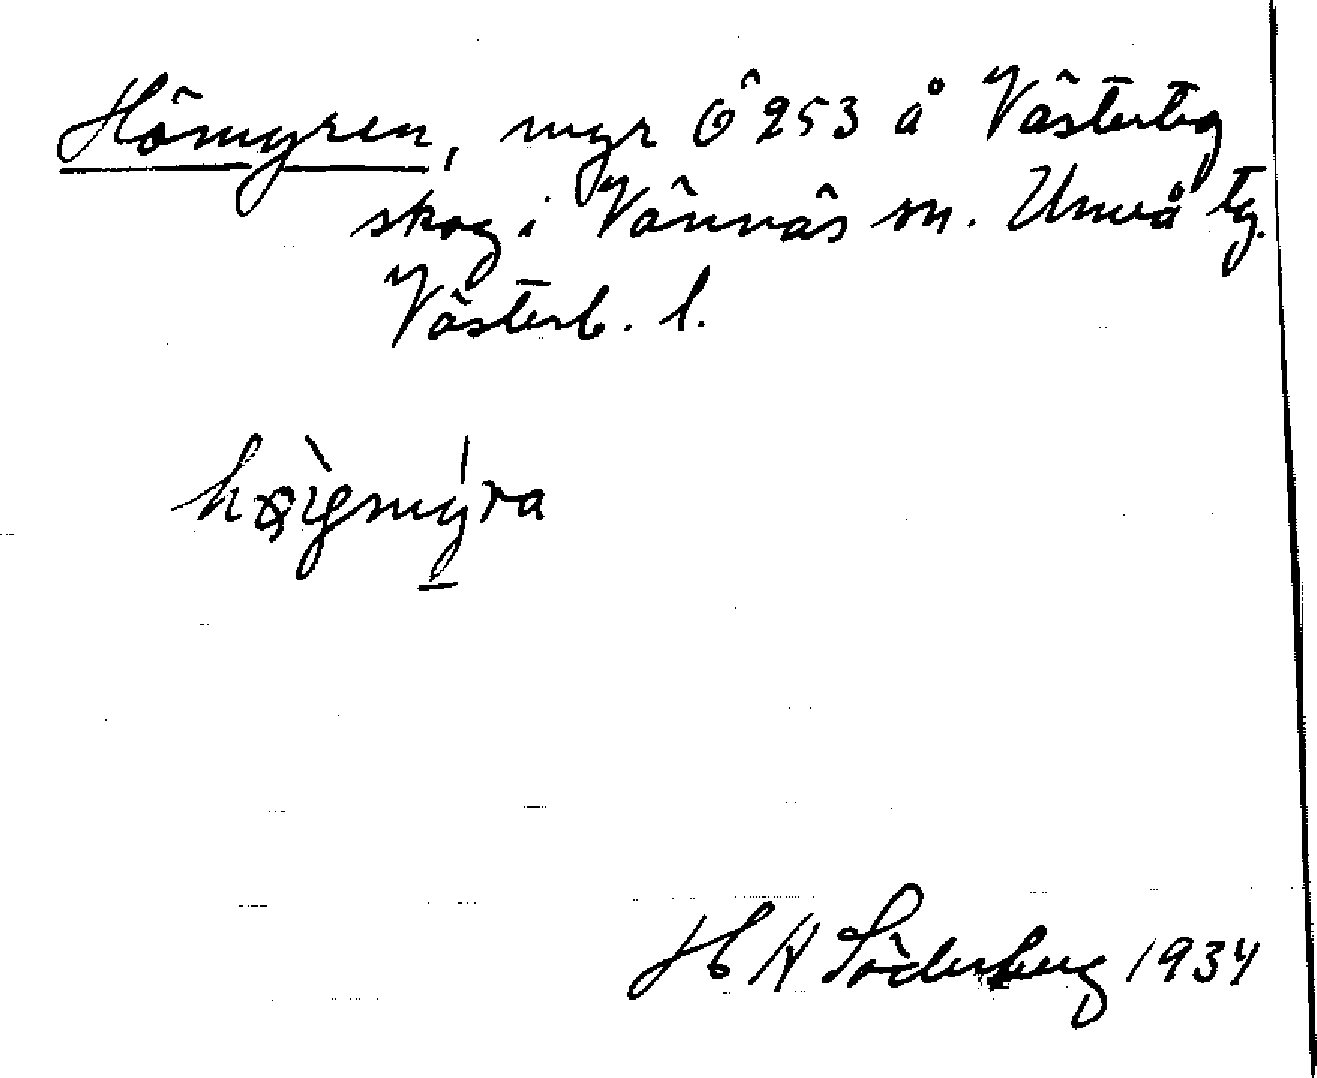 Hömyren, myr Ö 253 å Västerteg
skog i Vännäs sn. Umeå tg.
Västerb. l.
H A Söderberg 1934